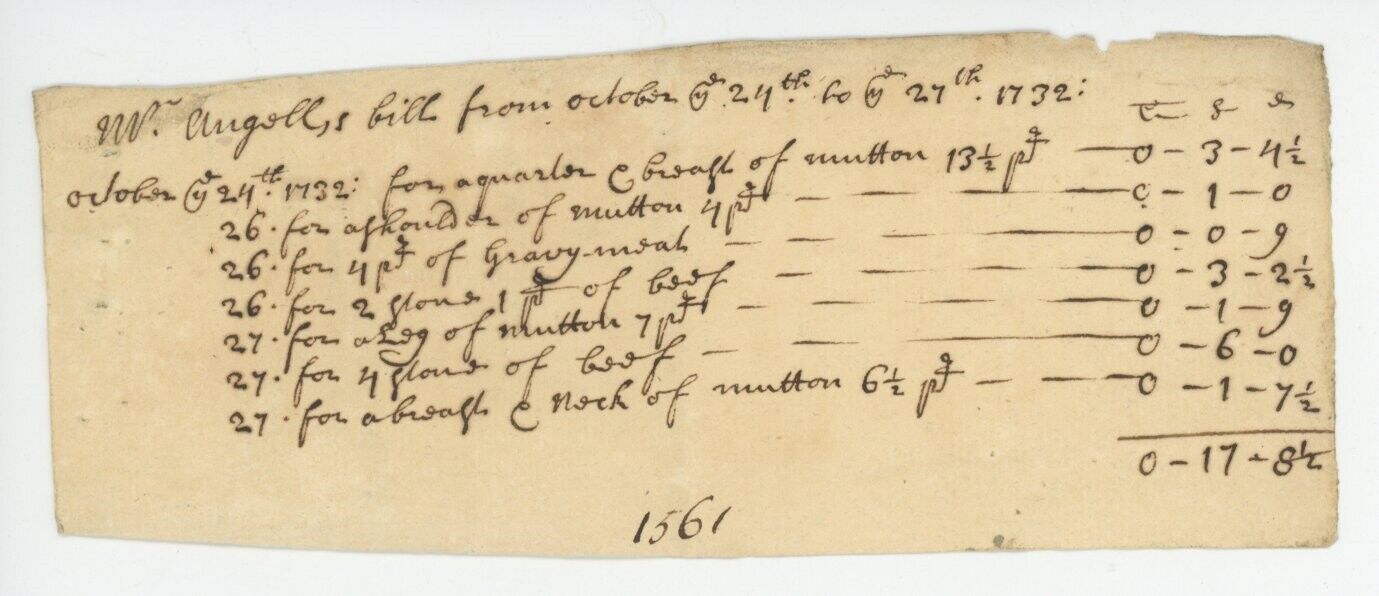 Mr. Angell,s bill from october ye 24th. to ye 27th. 1732:
£ s d
october ye 24th. 1732: for a quarter & breast of mutton 13½ pd — 0 - 3 - 4½
26. for a shoulder of mutton 4 pd — — — 0 - 1 - 0
26. for 4 pd of Gravy-meat — — — 0 - 0 - 9
26. for 2 stone 1 pd of beef — — — 0 - 3 - 2½
27. for a Leg of mutton 7 pd — — — 0 - 1 - 9
27. for 4 stone of beef — — — 0 - 6 - 0
27. for a breast & Neck of mutton 6½ pd — — 0 - 1 - 7½
0 - 17 - 8½
1561